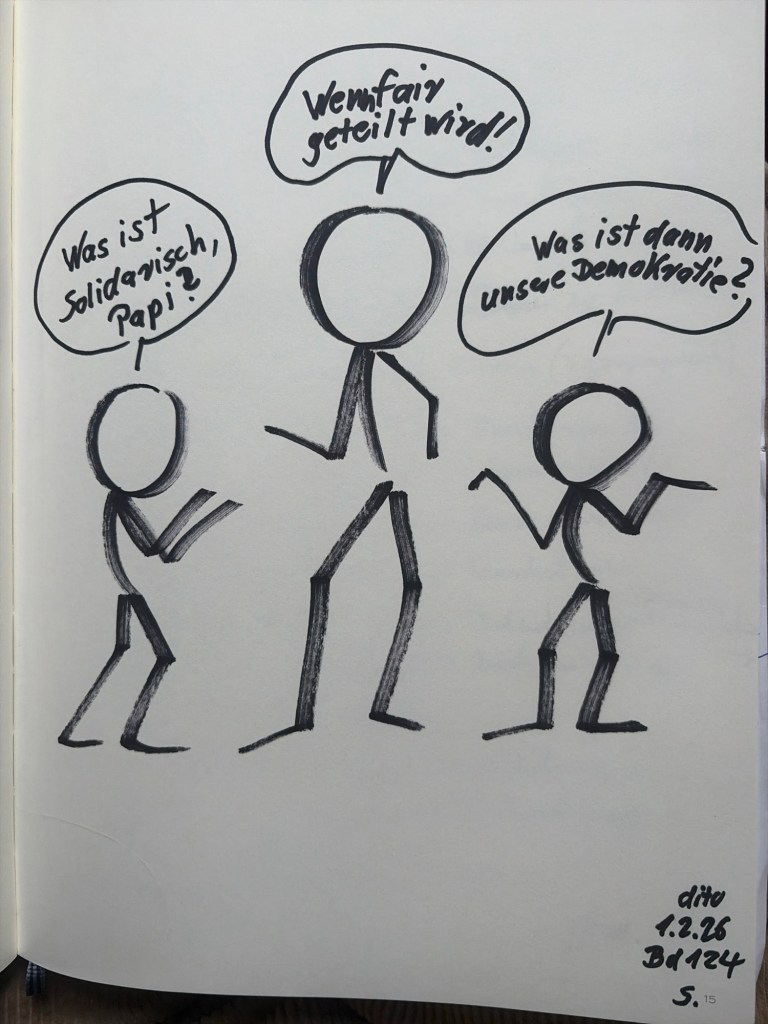 Was ist
Solidarisch,
Papi?
Wenn fair
geteilt wird!
Was ist dann
unsere Demokratie?
dito
1.2.26
Bd 124
S. 15